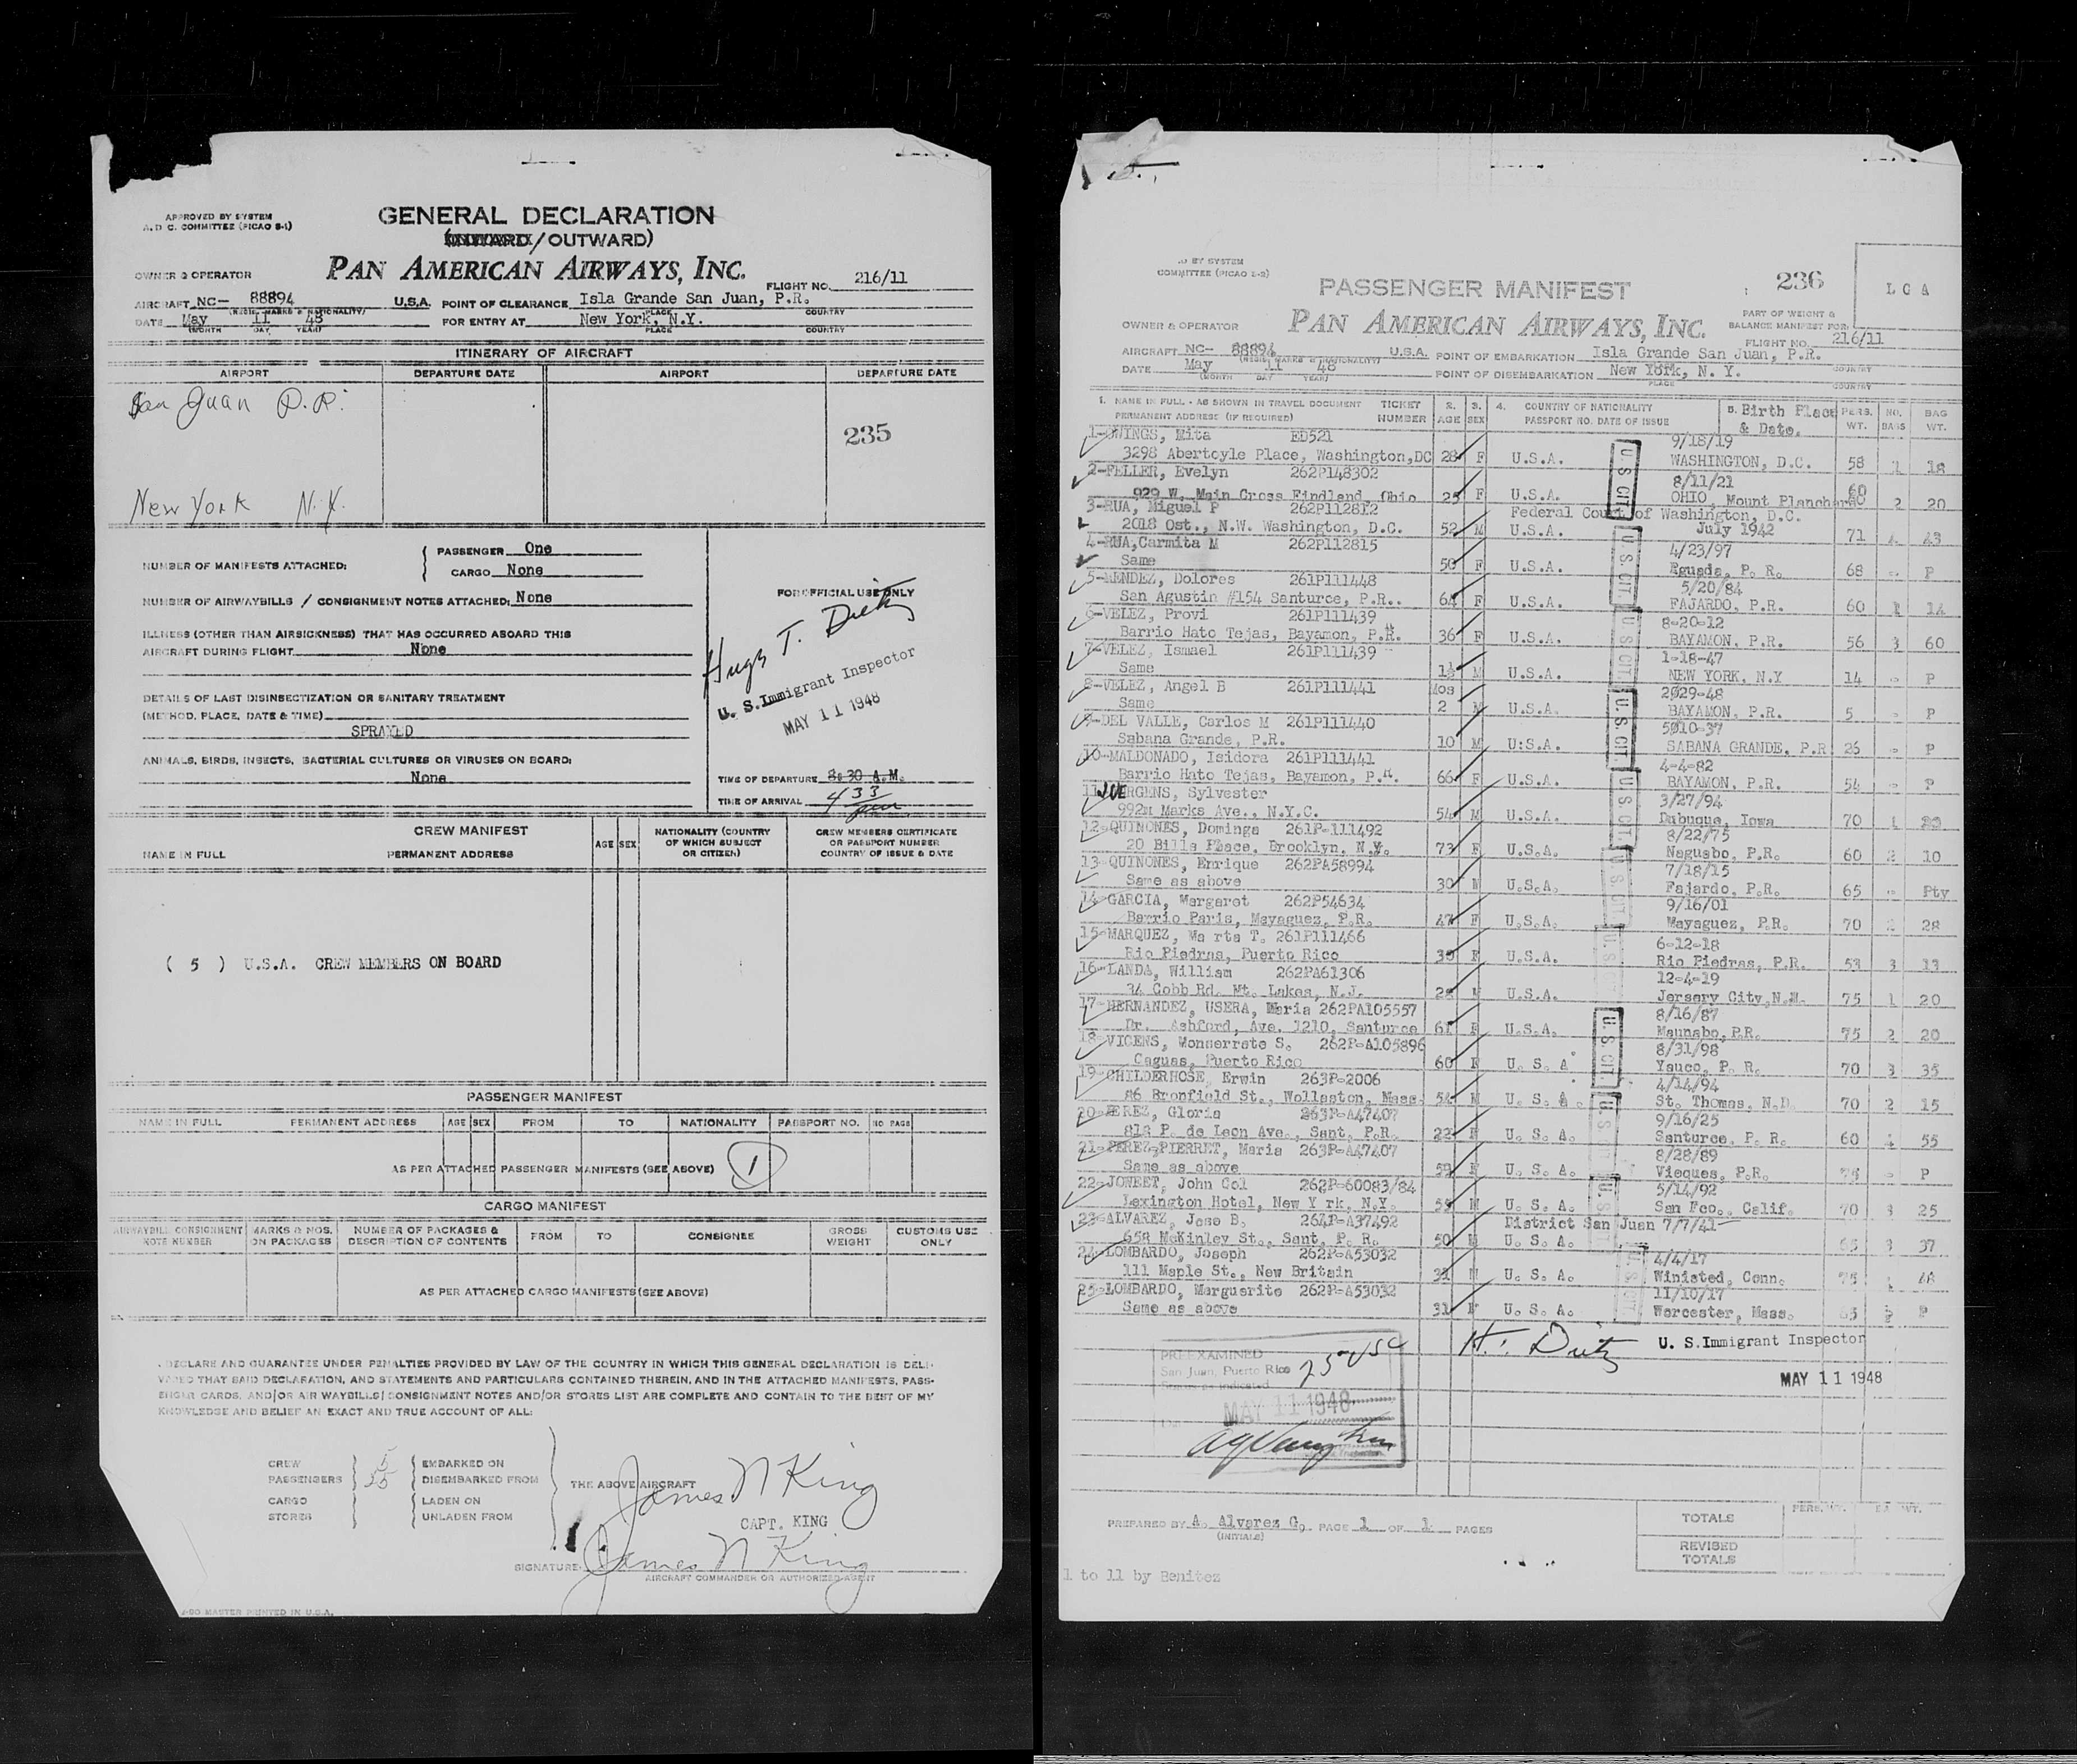 APPROVED BY SYSTEM
A. D C. COMMITTEE (PICAO S-1)
GENERAL DECLARATION
/OUTWARD)
PAN AMERICAN AIRWAYS, INC.
OWNER & OPERATOR
FLIGHT NO. 216/11
AIRCRAFT NC- 88894 U.S.A. POINT OF CLEARANCE Isla Grande San Juan, P.R.
(REGIS. MARKS & NATIONALITY) PLACE COUNTRY
DATE May 11 48 FOR ENTRY AT New York, N.Y.
(MONTH DAY YEAR) PLACE COUNTRY
ITINERARY OF AIRCRAFT
AIRPORT DEPARTURE DATE AIRPORT DEPARTURE DATE
San Juan P.R.
235
New York N.Y.
NUMBER OF MANIFESTS ATTACHED: PASSENGER One
CARGO None
NUMBER OF AIRWAYBILLS / CONSIGNMENT NOTES ATTACHED: None
ILLNESS (OTHER THAN AIRSICKNESS) THAT HAS OCCURRED ABOARD THIS
AIRCRAFT DURING FLIGHT None
DETAILS OF LAST DISINSECTIZATION OR SANITARY TREATMENT
(METHOD, PLACE, DATE & TIME)
SPRAYED
ANIMALS, BIRDS, INSECTS, BACTERIAL CULTURES OR VIRUSES ON BOARD:
None
FOR OFFICIAL USE ONLY
Hugh T. Dietz
U. S. Immigrant Inspector
MAY 11 1948
TIME OF DEPARTURE 8:30 A.M.
TIME OF ARRIVAL 433 pm
CREW MANIFEST
NAME IN FULL PERMANENT ADDRESS AGE SEX NATIONALITY (COUNTRY OF WHICH SUBJECT OR CITIZEN) CREW MEMBERS CERTIFICATE OR PASSPORT NUMBER COUNTRY OF ISSUE & DATE
( 5 ) U.S.A. CREW MEMBERS ON BOARD
PASSENGER MANIFEST
NAME IN FULL PERMANENT ADDRESS AGE SEX FROM TO NATIONALITY PASSPORT NO. NO PAGE
AS PER ATTACHED PASSENGER MANIFESTS (SEE ABOVE) 1
CARGO MANIFEST
AIRWAYBILL CONSIGNMENT NOTE NUMBER MARKS & NOS. ON PACKAGES NUMBER OF PACKAGES & DESCRIPTION OF CONTENTS FROM TO CONSIGNEE GROSS WEIGHT CUSTOMS USE ONLY
AS PER ATTACHED CARGO MANIFESTS (SEE ABOVE)
DECLARE AND GUARANTEE UNDER PENALTIES PROVIDED BY LAW OF THE COUNTRY IN WHICH THIS GENERAL DECLARATION IS DELI-
VERED THAT SAID DECLARATION, AND STATEMENTS AND PARTICULARS CONTAINED THEREIN, AND IN THE ATTACHED MANIFESTS, PASS-
ENGER CARDS, AND/OR AIR WAYBILLS/ CONSIGNMENT NOTES AND/OR STORES LIST ARE COMPLETE AND CONTAIN TO THE BEST OF MY
KNOWLEDGE AND BELIEF AN EXACT AND TRUE ACCOUNT OF ALL:
CREW 5 EMBARKED ON
PASSENGERS 25 DISEMBARKED FROM
CARGO LADEN ON
STORES UNLADEN FROM
THE ABOVE AIRCRAFT
James N King
CAPT. KING
SIGNATURE James N King
AIRCRAFT COMMANDER OR AUTHORIZED AGENT
MASTER PRINTED IN U.S.A.
BY SYSTEM
COMMITTEE (PICAO S-2)
PASSENGER MANIFEST
236
L C A
PART OF WEIGHT &
BALANCE MANIFEST FOR
OWNER & OPERATOR
PAN AMERICAN AIRWAYS, INC.
FLIGHT NO. 216/11
AIRCRAFT NC- 88894 U.S.A. POINT OF EMBARKATION Isla Grande San Juan, P.R.
(REGIS. MARKS & NATIONALITY) COUNTRY
DATE May 11 48 POINT OF DISEMBARKATION New York, N. Y.
(MONTH DAY YEAR) PLACE COUNTRY
1. NAME IN FULL - AS SHOWN IN TRAVEL DOCUMENT TICKET 2. 3. 4. COUNTRY OF NATIONALITY 5. Birth Place PERS. NO. BAG
PERMANENT ADDRESS (IF REQUIRED) NUMBER AGE SEX PASSPORT NO. DATE OF ISSUE & Date. WT. BAGS WT.
1-OWINGS, Mita ED521 9/18/19
3298 Abertoyle Place, Washington,DC 28 F U.S.A. WASHINGTON, D.C. 58 1 18
2-FELLER, Evelyn 262P148302 8/11/21
929 W. Main Cross Findland, Ohio 25 F U.S.A. OHIO, Mount 60 2 20
3-RUA, Miguel P 262P112812 Federal Court of Washington, D.C.
2018 Ost., N.W. Washington, D.C. 52 M U.S.A. July 1942 71 43
4-RUA,Carmita M 262P112815 4/23/97
Same 50 F U.S.A. Eguada, P. R. 68 - P
5-MENDEZ, Dolores 261P111448 5/20/84
San Agustin #154 Santurce, P.R.. 64 F U.S.A. FAJARDO, P.R. 60 1 14
6-VELEZ, Provi 261P111439 8-20-12
Barrio Hato Tejas, Bayamon, P.R. 36 F U.S.A. BAYAMON, P.R. 56 3 60
7-VELEZ, Ismael 261P111439 1-18-47
Same 1½ M U.S.A. NEW YORK, N.Y 14 - P
8-VELEZ, Angel B 261P111441 Mos 2029-48
Same 2 M U.S.A. BAYAMON, P.R. 5 - P
9-DEL VALLE, Carlos M 261P111440 5010-37
Sabana Grande, P.R. 10 M U:S.A. SABANA GRANDE, P.R 26 - P
10-MALDONADO, Isidora 261P111441 4-4-82
Barrio Hato Tejas, Bayamon, P.R. 66 F U.S.A. BAYAMON, P.R. 54 - P
11 JUERGENS, Sylvester 3/27/94
992 Marks Ave., N.Y.C. 54 M U.S.A. Dubuque, Iowa 70 1
12-QUINONES, Dominga 261P-111492 8/22/75
20 Bills Place, Brooklyn, N.Y. 73 F U.S.A. Naguabo, P.R. 60 2 10
13-QUINONES, Enrique 262PA58994 7/18/15
Same as above 30 M U.S.A. Fajardo, P.R. 65 - Pty
14-GARCIA, Margaret 262P54634 9/16/01
Barrio Paris, Mayaguez, P.R. 47 F U.S.A. Mayaguez, P.R. 70 2 28
15-MARQUEZ, Ma rta T. 261P111466 6-12-18
Rio Piedras, Puerto Rico 30 F U.S.A. Rio Piedras, P.R. 53 3 13
16-LANDA, William 262PA61306 12-4-19
34 Cobb Rd. Mt. Lakes, N.J. 28 M U.S.A. Jersery City,N.M. 75 1 20
17-HERNANDEZ, USERA, Maria 262PA105557 8/16/87
Dr. Ashford, Ave. 1210, Santurce 61 F U.S.A. Maunabo,P.R. 75 2 20
18-VICENS, Monserrate S. 262P-A105896 8/31/98
Caguas, Puerto Rico 60 F U. S. A Yauco, P. R. 70 3 35
19-CHILDERHOSE, Erwin 263P-2006 4/14/94
86 Bronfield St., Wollaston, Mass. 54 M U. S. A. St. Thomas, N.D. 70 2 15
20-PEREZ, Gloria 263P-A47407 9/16/25
818 P. de Leon Ave., Sant, P.R. 22 F U. S. A. Santurce, P. R. 60 4 55
21-PEREZ-PIERRET, Maria 263P-A47407 8/28/89
Same as above 59 F U. S. A. Vieques, P.R. - P
22-JOWEET, John Col 262P-60083/84 5/14/92
Lexington Hotel, New Y rk, N.Y. 55 M U. S. A. San Fco., Calif. 70 3 25
23-ALVAREZ, Jose B. 264P-A37492 District San Juan 7/7/41
658 McKinley St., Sant, P. R. 50 M U. S. A. 65 3 37
24-LOMBARDO, Joseph 262P-A53032 4/4/17
111 Maple St., New Britain 31 M U. S. A. Winisted, Conn. 75 1 48
25-LOMBARDO, Marguerite 262P-A53032 11/10/17
Same as above 31 F U. S. A. Worcester, Mass. 65 P
U S CIT.
U.S. CIT.
U.S. CIT.
U.S. CIT.
U.S. CIT.
U.S. CIT.
U.S. CIT.
PREEXAMINED
San Juan, Puerto Rico
25 USC
MAY 11 1948
H. T. Dietz U. S. Immigrant Inspector
MAY 11 1948
PREPARED BY A. Alvarez G. PAGE 1 OF 1 PAGES
(INITIALS)
PERS. WT. BAG WT.
TOTALS
REVISED
TOTALS
1 to 11 by Benitez